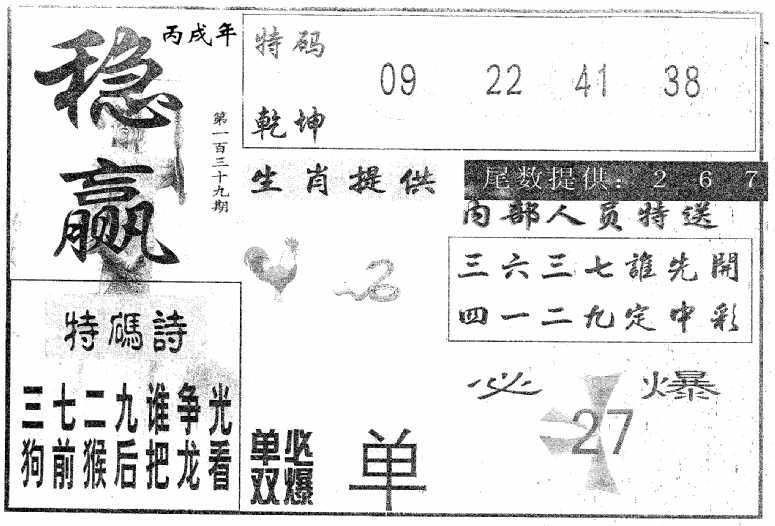 丙戌年
稳赢
第一百三十九期
特码
09 22 41 38
乾坤
生肖提供
尾数提供：2 6 7
内部人员特送
三六三七誰先開
四一二九定中彩
特碼詩
三七二九谁争光
狗前猴后把龙看
单双必爆
单
必爆
27